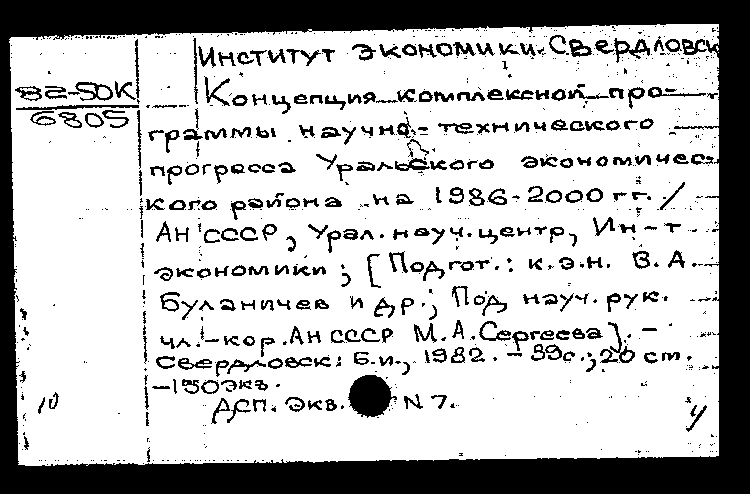 Институт экономики. Свердловск
82-50К
6805
Концепция комплексной про-
граммы научно-технического
прогресса Уральского экономичес-
кого района на 1986-2000 гг. /
АН СССР, Урал. науч. центр, Ин-т
экономики; [Подгот.: к.э.н. В.А.
Буланичев и др.; Под науч. рук.
чл.-кор. АН СССР М.А.Сергеева]. -
Свердловск: Б.и., 1982. - 39с.; 20 см.
-150экз.
ДСП. Экз. N 7.
10
ч